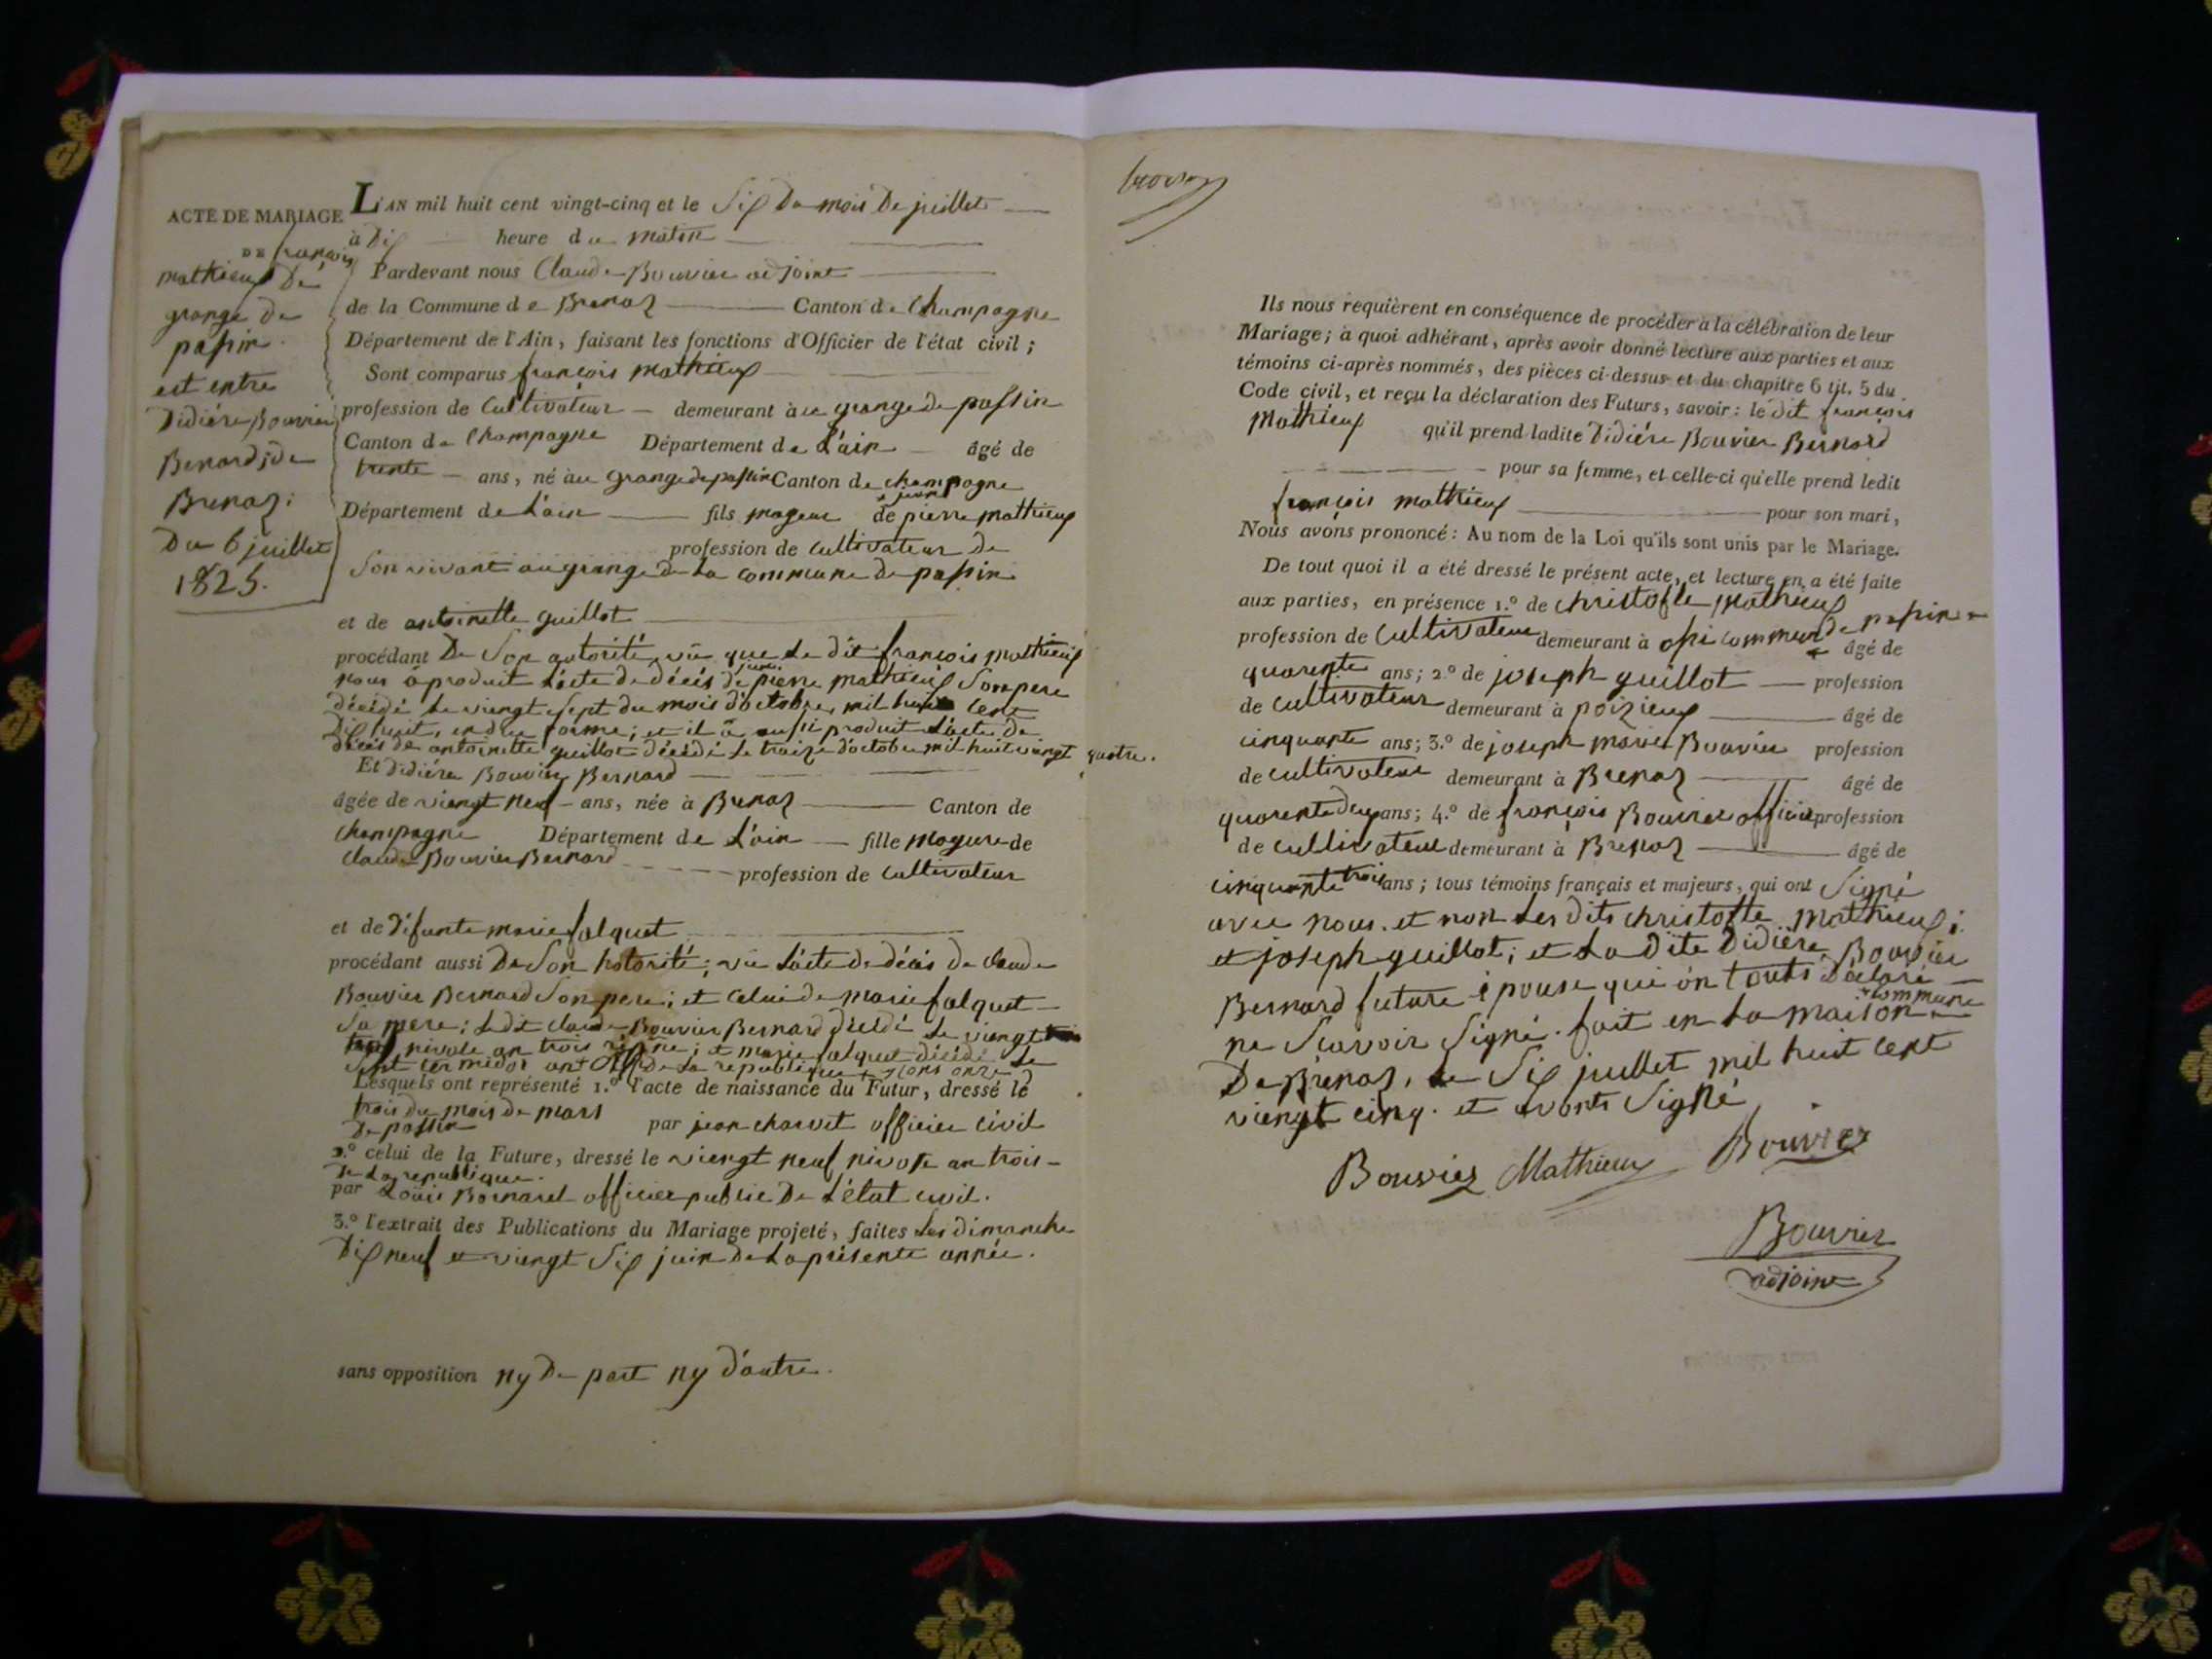 ACTE DE MARIAGE
DE françois
mathieux De
grange de
passin
est entre
Didière Bouvier
Bernard; de
Brenaz;
Du 6 juillet
1825.
L'AN mil huit cent vingt-cinq et le Six Du mois De juillet
à Dix heure du matin
Pardevant nous Claude Bouvier adjoint
de la Commune de Brenaz Canton de Champagne
Département de l'Ain, faisant les fonctions d'Officier de l'état civil;
Sont comparus françois mathieux
profession de Cultivateur demeurant au grange de passin
Canton de Champagne Département de L'ain âgé de
trente ans, né au Grange de passin Canton de champagne
Département de L'ain fils mageur de pierre mathieux
profession de cultivateur de
Son vivant au grange de La commune de passin
et de antoinette guillot
procédant De Son autorité, vû que Le dit françois mathieux
nous à produit L'acte de décès de pierre mathieux Son pere
décédé Le viengt Sept du mois d'octobre mil huit Cent
Dix huit, en due forme; et il à aussi produit L'acte de
décès de antoinette guillot décédé Le traize d'octobre mil huit viengt quatre.
Et didière Bouvier Bernard
âgée de viengt neuf ans, née à Brenaz Canton de
Champagne Département de L'ain fille mageure de
Claude Bouvier Bernard profession de cultivateur
et de Défunte marie falquet
procédant aussi De Son hotorité; vû L'acte de décès de Claude
Bouvier Bernard Son pere; et Celui de marie falquet
Sa mere; Ledit Claude Bouvier Bernard décédé Le viengt
nivose an trois et marie falquet décédé Le
Sept termidor de La republique
Lesquels ont représenté 1.º l'acte de naissance du Futur, dressé le
trois du mois de mars par jean charvet officier civil
De passin
2.º celui de la Future, dressé le viengt neuf nivose an trois
De La republique.
par Louis Bornarel officier public De L'état civil.
3.º l'extrait des Publications du Mariage projeté, faites Les dimanche
Dix neuf et viengt Six juin De La présente année.
sans opposition ny De part ny d'autre.
Ils nous requièrent en conséquence de procéder à la célébration de leur
Mariage; à quoi adhérant, après avoir donné lecture aux parties et aux
témoins ci-après nommés, des pièces ci-dessus et du chapitre 6 tit. 5 du
Code civil, et reçu la déclaration des Futurs, savoir: le dit françois
Mathieux qu'il prend ladite Didière Bouvier Bernard
pour sa femme, et celle-ci qu'elle prend ledit
françois mathieux pour son mari,
Nous avons prononcé: Au nom de la Loi qu'ils sont unis par le Mariage.
De tout quoi il a été dressé le présent acte, et lecture en a été faite
aux parties, en présence 1.º de christofle Mathieux
profession de Cultivateur demeurant à commune de passin âgé de
quarente ans; 2.º de joseph guillot profession
de cultivateur demeurant à poizieux âgé de
cinquante ans; 3.º de joseph marie Bouvier profession
de cultivateur demeurant à Brenaz âgé de
quarente deux ans; 4.º de françois Bouvier officier profession
de cultivateur demeurant à Brenaz âgé de
cinquante trois ans; tous témoins français et majeurs, qui ont Signé
avec nous. et non Les dits christofle Mathieux;
et joseph guillot; et La dite Didière Bouvier
Bernard future épouse qui ôn touts déclaré
ne Scavoir Signé. fait en La maison commune
De Brenaz, Le Six juillet mil huit cent
viengt cinq. et avons Signé
Bouvier Mathieux Bouvier
Bouvier
adjoint